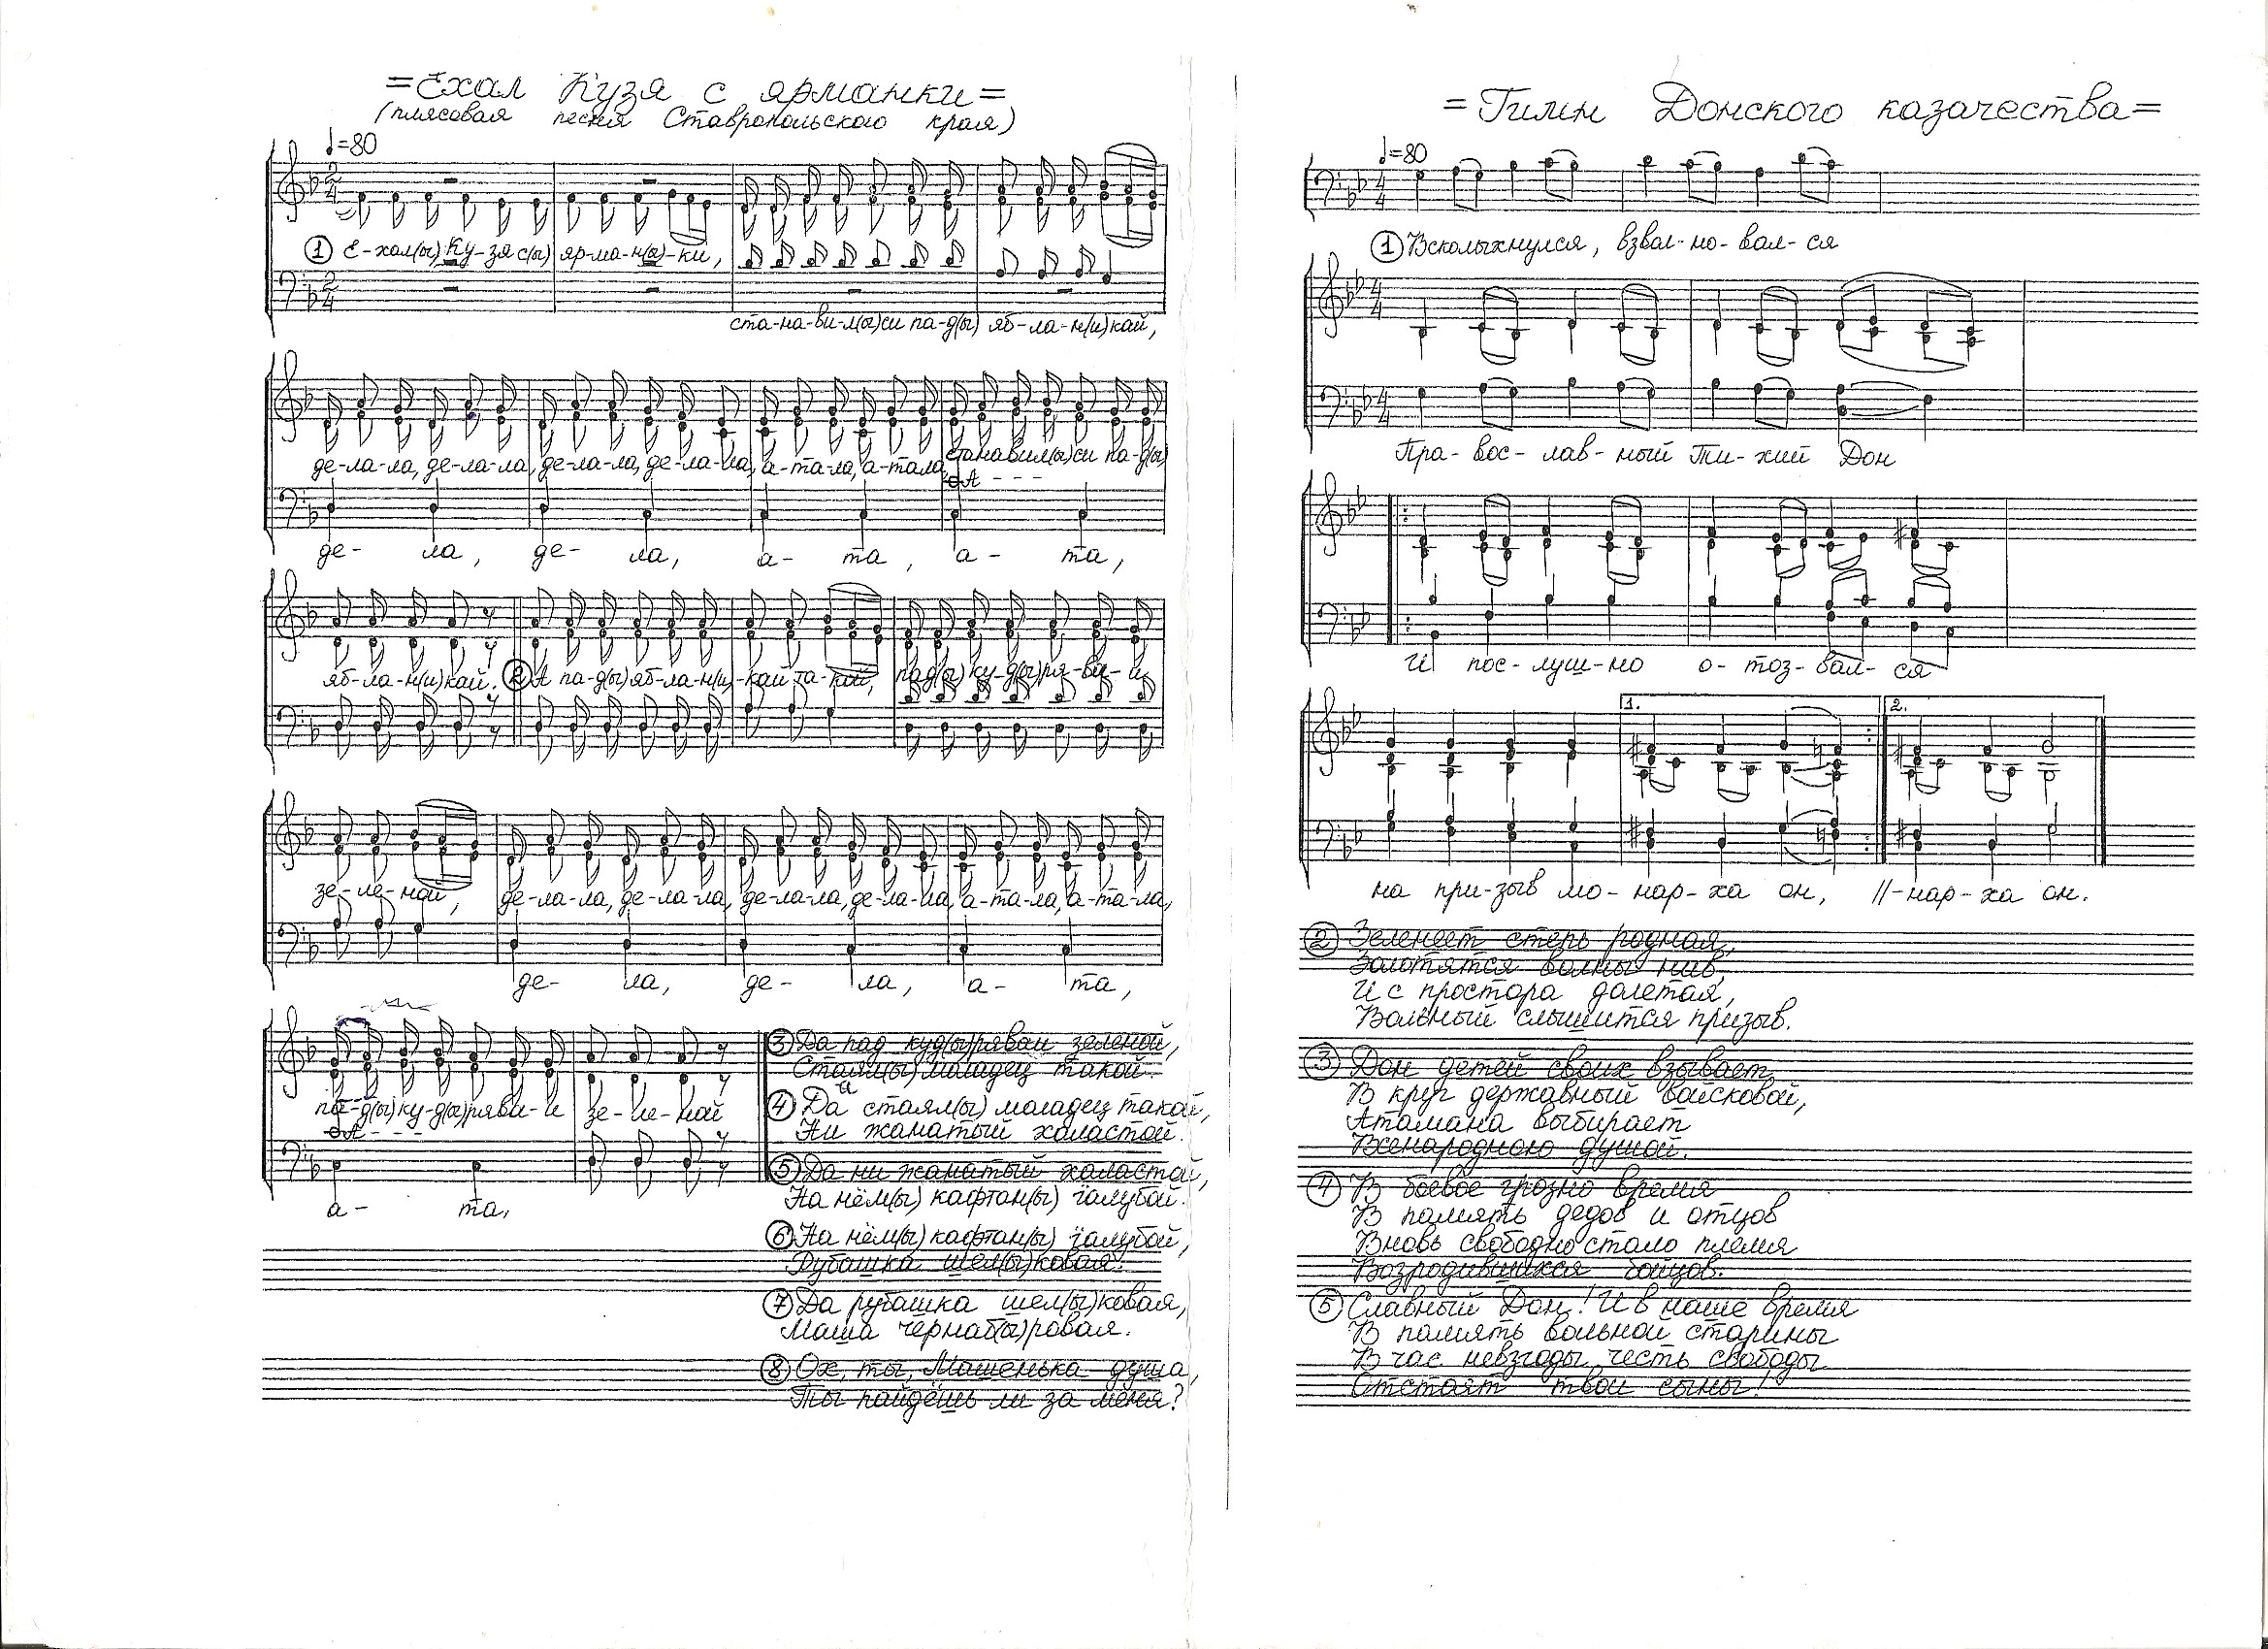 =Ехал Кузя с ярманки=
(плясовая песня Ставропольского края)
♩=80
2/4
① Е-хал(ы) Ку-зя с(ы) яр-ма-н(ы)-ки,
2/4
ста-на-ви-л(ы)си па-д(ы) яб-ла-н(и)кай,
де-ла-ла, де-ла-ла, де-ла-ла, де-ла-ла, а-та-ла, а-тала, становил(ы)си па-д(ы)
А - - -
де- ла, де- ла, а- та, а- та,
яб-ла-н(и)кай. ② А па-д(ы) яб-ла-н(и)-кай та-кай, пад(ы) ку-д(ы)ря-ви-и
зе-ле-най, де-ла-ла, де-ла-ла, де-ла-ла, де-ла-ла, а-та-ла, а-та-ла,
де- ла, де- ла, а- та,
па-д(ы) ку-д(ы)ряви-и зе-ле-най
А - - -
а- та,
③ Да пад куд(ы)рявай зеленой,
Стаял(ы) маладец такой.
④ Да стаял(ы) маладец такой,
Ни жанатый халастой.
⑤ Да ни жанатый халастой,
На нём(ы) кафтан(ы) галубой.
⑥ На нём(ы) кафтан(ы) галубой,
Рубашка шел(ы)ковая.
⑦ Да рубашка шел(ы)ковая,
Маша чернаб(ы)ровая.
⑧ Ох, ты, Машенька душа,
Ты пайдёшь ли за меня?
=Гимн Донского казачества=
♩=80
4/4
① Всколыхнулся, взвал-но-вал-ся
4/4
4/4
Пра-вос-лав-ный Ти-хий Дон
И пос-луш-но о-тоз-вал-ся
1. 2.
на при-зыв мо-нар-ха он, //-нар-ха он.
② Зеленеет степь родная,
Золотятся волны нив,
И с простора долетая,
Вольный слышится призыв.
③ Дон детей своих взывает
В круг державный войсковой,
Атамана выбирает
Всенародною душой.
④ В боевое грозно время
В память дедов и отцов
Вновь свободно стало племя
Возродившихся бойцов.
⑤ Славный Дон! И в наше время
В память вольной старины
В час невзгоды честь свободы
Отстоят твои сыны!